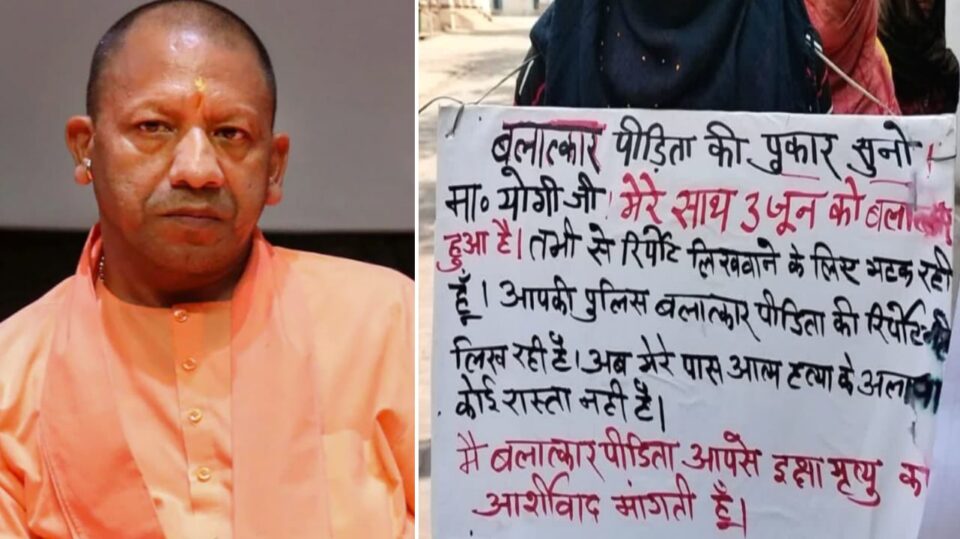 बलात्कार पीड़िता की पूकार सुनो।
मा० योगी जी! मेरे साथ 3 जून को
हुआ है। तभी से रिपोर्ट लिखवाने के लिए भटक रही
हूँ। आपकी पुलिस बलात्कार पीडिता की रिपोर्ट
लिख रही है। अब मेरे पास आत्म हत्या के
कोई रास्ता नही है।
मै बलात्कार पीडिता आपसे इक्षा मृत्यु का
आर्शीवाद मांगती हूँ।